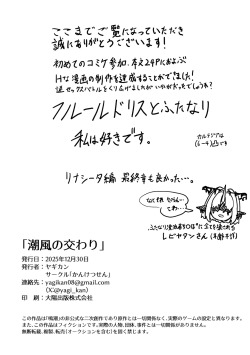 ここまでご覧になっていただき
誠にありがとうございます!
初めてのコミケ参加、本文24Pにおよぶ
Hな漫画の制作を達成することができました!
謎セックスバトルをくり広げましたがいかがだったでしょうか?
フルールドリスとふたなり
私は好きです。
カルテジアは
(レーチ)凸です
リナシータ編 最終章も良かった…。
なんて怪だろう…
こわ…
レビヤタンさん(年齢不詳)
「潮風の交わり」
発行日:2025年12月30日
発行者:ヤギカン
サークル「かんけつせん」
連絡先:yagikan08@gmail.com
(X:@yagi_kan)
印 刷:太陽出版株式会社
この作品は「鳴潮」の非公式な二次創作であり原作とは一切関係なく、実際のゲームの設定と異なります。
また、この作品はフィクションです。実際の人物、団体、事件とは一切関係がありません。
無断転載、複製、改変(生成AIによるものを含む)、販売を禁止しております。